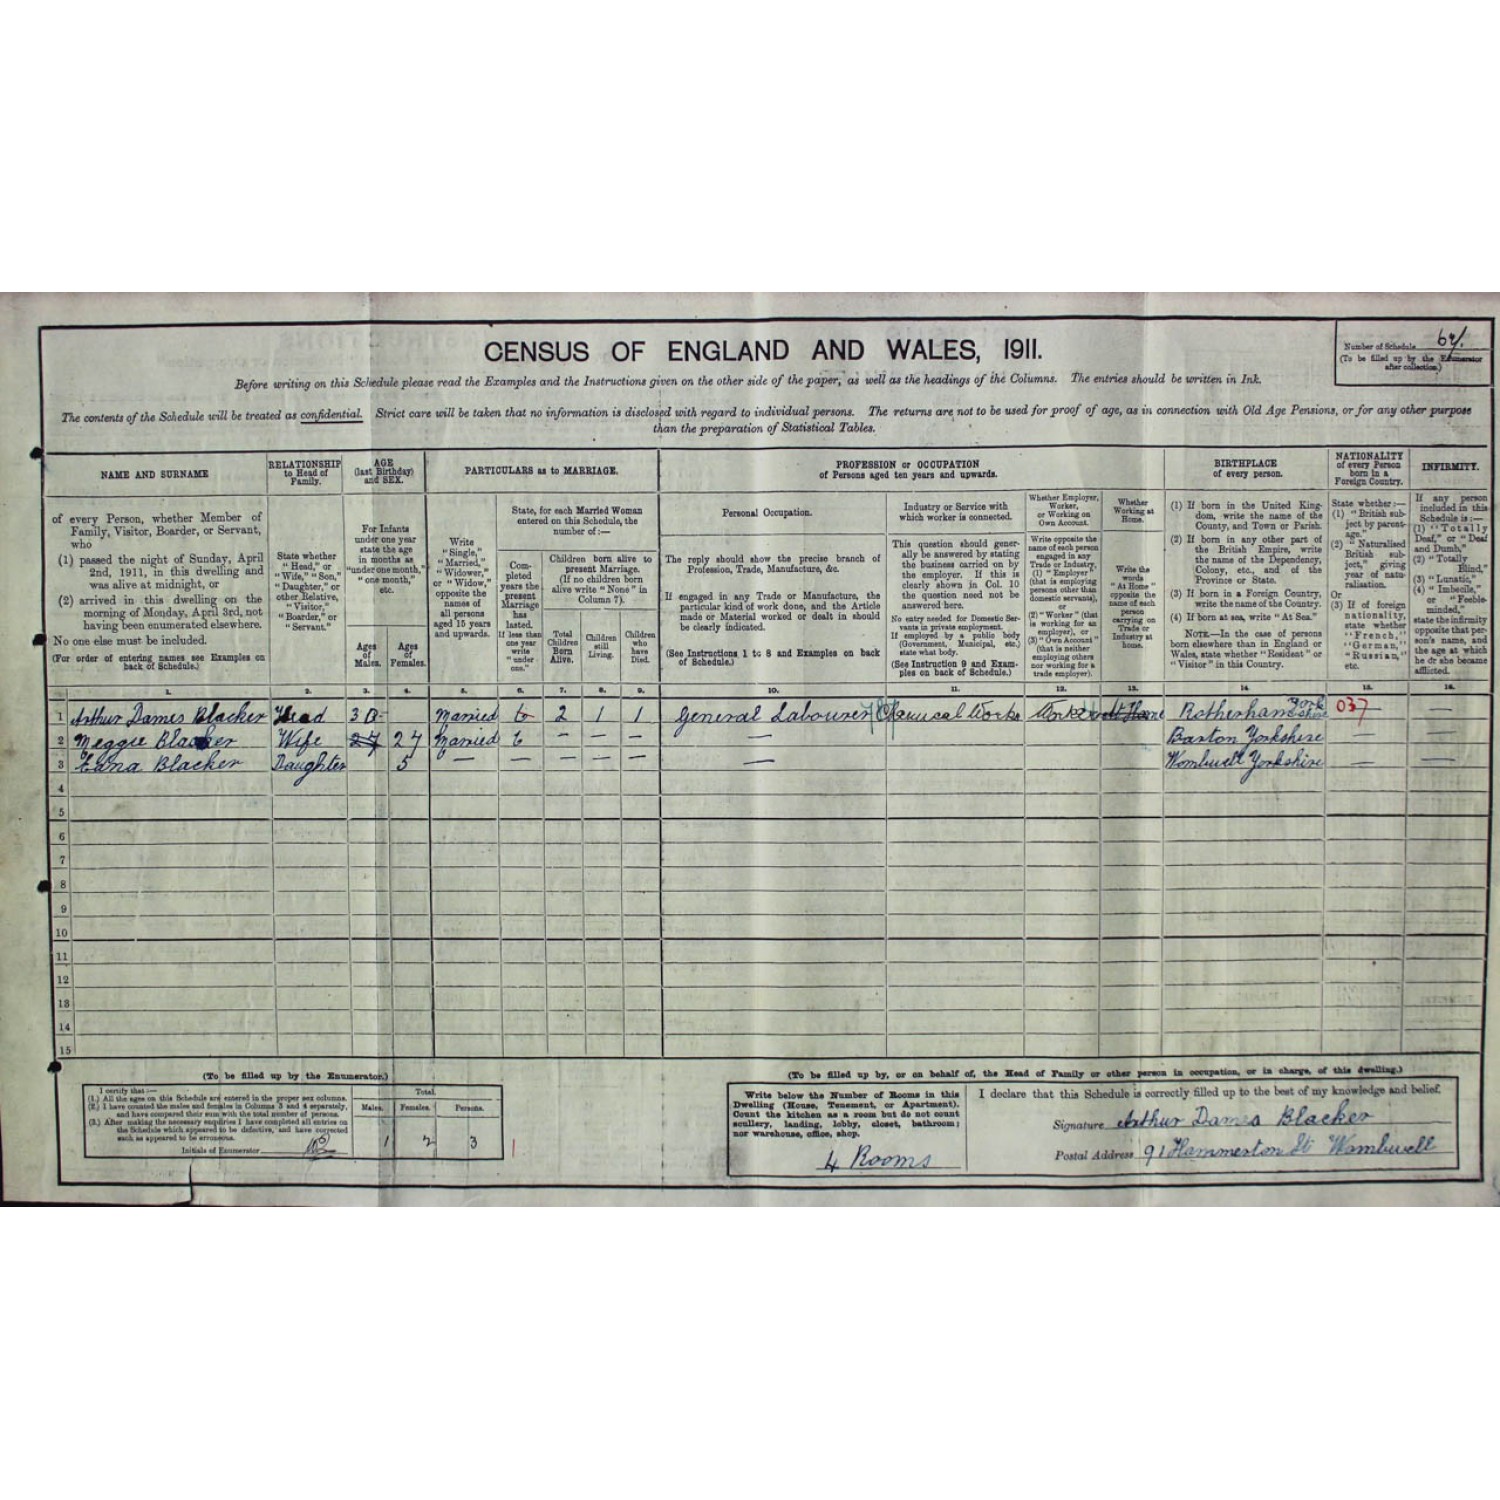 CENSUS OF ENGLAND AND WALES, 1911.
Number of Schedule
(To be filled up by the Enumerator
after collection.)
Before writing on this Schedule please read the Examples and the Instructions given on the other side of the paper, as well as the headings of the Columns. The entries should be written in Ink.
The contents of the Schedule will be treated as confidential. Strict care will be taken that no information is disclosed with regard to individual persons. The returns are not to be used for proof of age, as in connection with Old Age Pensions, or for any other purpose
than the preparation of Statistical Tables.
NAME AND SURNAME
of every Person, whether Member of
Family, Visitor, Boarder, or Servant,
who
(1) passed the night of Sunday, April
2nd, 1911, in this dwelling and
was alive at midnight, or
(2) arrived in this dwelling on the
morning of Monday, April 3rd, not
having been enumerated elsewhere.
No one else must be included.
(For order of entering names see Examples on
back of Schedule.)
RELATIONSHIP
to Head of
Family.
State whether
"Head," or
"Wife," "Son,"
"Daughter," or
other Relative,
"Visitor,"
"Boarder," or
"Servant."
AGE
(last Birthday)
and SEX.
For Infants
under one year
state the age
in months as
"under one month,"
"one month,"
etc.
Ages
of
Males.
Ages
of
Females.
PARTICULARS as to MARRIAGE.
Write
"Single,"
"Married,"
"Widower,"
or "Widow,"
opposite the
names of
all persons
aged 15 years
and upwards.
State, for each Married Woman
entered on this Schedule, the
number of:—
Com-
pleted
years the
present
Marriage
has
lasted.
If less than
one year
write
"under
one."
Children born alive to
present Marriage.
(If no children born
alive write "None" in
Column 7).
Total
Children
Born
Alive.
Children
still
Living.
Children
who
have
Died.
PROFESSION or OCCUPATION
of Persons aged ten years and upwards.
Personal Occupation.
The reply should show the precise branch of
Profession, Trade, Manufacture, &c.
If engaged in any Trade or Manufacture, the
particular kind of work done, and the Article
made or Material worked or dealt in should
be clearly indicated.
(See Instructions 1 to 8 and Examples on back
of Schedule.)
Industry or Service with
which worker is connected.
This question should gener-
ally be answered by stating
the business carried on by
the employer. If this is
clearly shown in Col. 10
the question need not be
answered here.
No entry needed for Domestic Ser-
vants in private employment.
If employed by a public body
(Government, Municipal, etc.)
state what body.
(See Instruction 9 and Exam-
ples on back of Schedule.)
Whether Employer,
Worker,
or Working on
Own Account.
Write opposite the
name of each person
engaged in any
Trade or Industry,
(1) "Employer"
(that is employing
persons other than
domestic servants),
or
(2) "Worker" (that
is working for an
employer), or
(3) "Own Account"
(that is neither
employing others
nor working for a
trade employer).
Whether
Working at
Home.
Write the
words
"At Home"
opposite the
name of each
person
carrying on
Trade or
Industry at
home.
BIRTHPLACE
of every person.
(1) If born in the United King-
dom, write the name of the
County, and Town or Parish.
(2) If born in any other part of
the British Empire, write
the name of the Dependency,
Colony, etc., and of the
Province or State.
(3) If born in a Foreign Country,
write the name of the Country.
(4) If born at sea, write "At Sea."
NOTE.—In the case of persons
born elsewhere than in England or
Wales, state whether "Resident" or
"Visitor" in this Country.
NATIONALITY
of every Person
born in a
Foreign Country.
State whether:—
(1) "British sub-
ject by parent-
age,"
(2) "Naturalised
British sub-
ject," giving
year of natu-
ralisation.
Or
(3) If of foreign
nationality,
state whether
"French,"
"German,"
"Russian,"
etc.
INFIRMITY.
If any person
included in this
Schedule is:—
(1) "Totally
Deaf," or "Deaf
and Dumb,"
(2) "Totally
Blind,"
(3) "Lunatic,"
(4) "Imbecile,"
or "Feeble-
minded,"
state the infirmity
opposite that per-
son's name, and
the age at which
he or she became
afflicted.
1. 2. 3. 4. 5. 6. 7. 8. 9. 10. 11. 12. 13. 14. 15. 16.
1 Arthur Dames Blacker Head 30 Married 6 2 1 1 General Labourer Chemical Works Worker At Home Rotherham Yorkshire 037 —
2 Meggie Blacker Wife 27 27 Married 6 — — — — Barton Yorkshire — —
3 Edna Blacker Daughter 5 — — — — — — Wombwell Yorkshire — —
4
5
6
7
8
9
10
11
12
13
14
15
(To be filled up by the Enumerator.)
I certify that:—
(1.) All the ages on this Schedule are entered in the proper sex columns.
(2.) I have counted the males and females in Columns 3 and 4 separately,
and have compared their sum with the total number of persons.
(3.) After making the necessary enquiries I have completed all entries on
the Schedule which appeared to be defective, and have corrected
such as appeared to be erroneous.
Initials of Enumerator
Total.
Males. Females. Persons.
1 2 3
(To be filled up by, or on behalf of, the Head of Family or other person in occupation, or in charge, of this dwelling.)
Write below the Number of Rooms in this
Dwelling (House, Tenement, or Apartment).
Count the kitchen as a room but do not count
scullery, landing, lobby, closet, bathroom;
nor warehouse, office, shop.
4 Rooms
I declare that this Schedule is correctly filled up to the best of my knowledge and belief.
Signature Arthur Dames Blacker
Postal Address 91 Hammerton St Wombwell